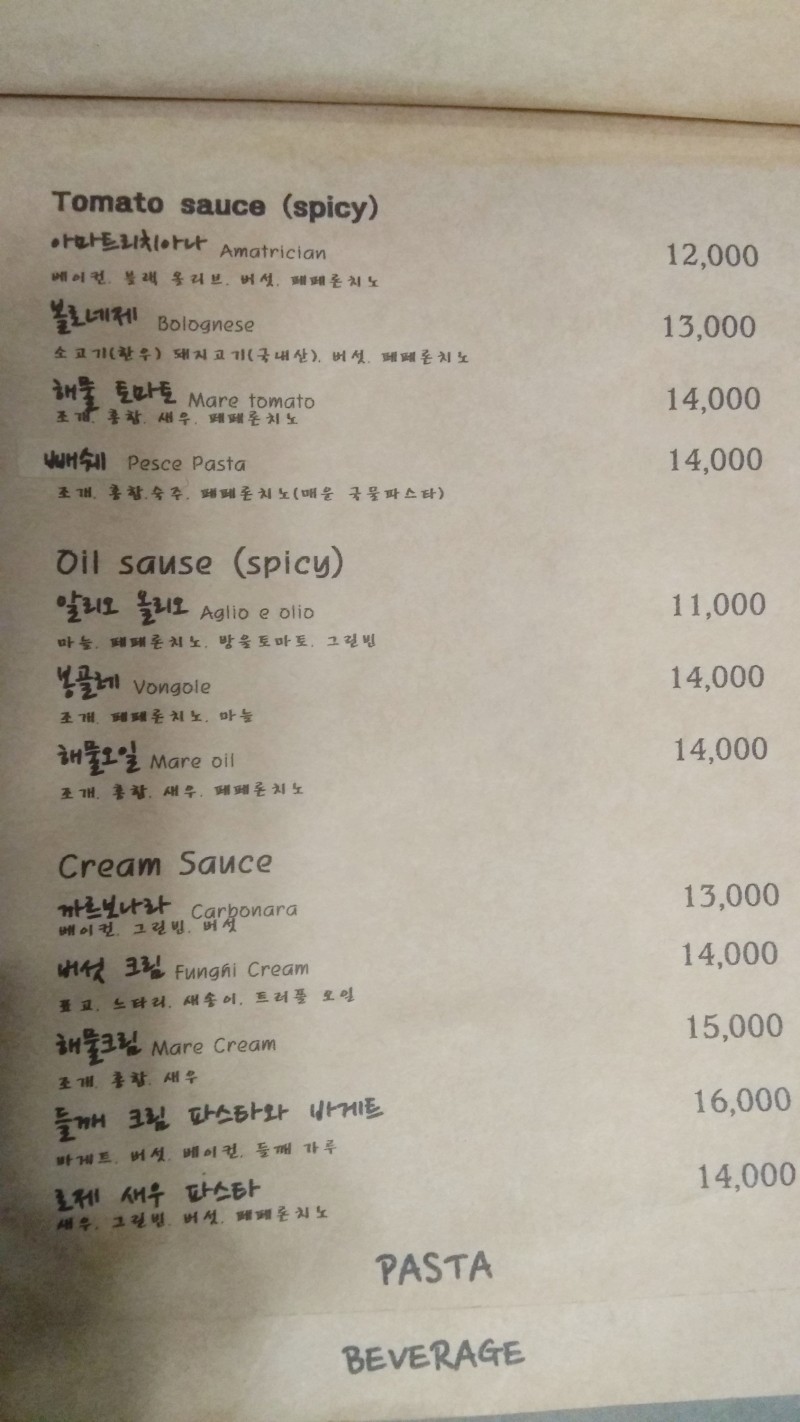 Tomato sauce (spicy)
아마트리치아나 Amatrician 12,000
베이컨, 블랙 올리브, 버섯, 페페론치노
볼로네제 Bolognese 13,000
소고기(한우) 돼지고기(국내산), 버섯, 페페론치노
해물 토마토 Mare tomato 14,000
조개, 홍합, 새우, 페페론치노
빼쉐 Pesce Pasta 14,000
조개, 홍합,숙주, 페페론치노(매운 국물파스타)
Oil sause (spicy)
알리오 올리오 Aglio e olio 11,000
마늘, 페페론치노, 방울토마토, 그린빈
봉골레 Vongole 14,000
조개, 페페론치노, 마늘
해물오일 Mare oil 14,000
조개, 홍합, 새우, 페페론치노
Cream Sauce
까르보나라 Carbonara 13,000
베이컨, 그린빈, 버섯
버섯 크림 Funghi Cream 14,000
표고, 느타리, 새송이, 트러플 오일
해물크림 Mare Cream 15,000
조개, 홍합, 새우
들깨 크림 파스타와 바게트 16,000
바게트, 버섯, 베이컨, 들깨 가루
로제 새우 파스타 14,000
새우, 그린빈, 버섯, 페페론치노
PASTA
BEVERAGE